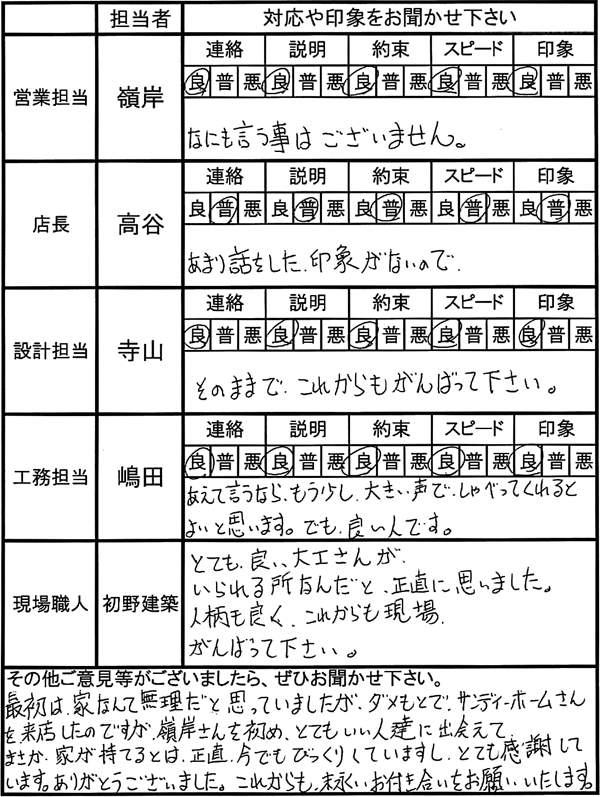 担当者 対応や印象をお聞かせ下さい
営業担当 嶺岸
連絡 説明 約束 スピード 印象
良 普 悪 良 普 悪 良 普 悪 良 普 悪 良 普 悪
なにも言う事はございません。
店長 高谷
連絡 説明 約束 スピード 印象
良 普 悪 良 普 悪 良 普 悪 良 普 悪 良 普 悪
あまり話をした、印象がないので、
設計担当 寺山
連絡 説明 約束 スピード 印象
良 普 悪 良 普 悪 良 普 悪 良 普 悪 良 普 悪
そのままで、これからもがんばって下さい。
工務担当 嶋田
連絡 説明 約束 スピード 印象
良 普 悪 良 普 悪 良 普 悪 良 普 悪 良 普 悪
あえて言うなら、もう少し、大きい声で、しゃべってくれると
よいと思います。でも、良い人です。
現場職人 初野建築
とても、良い、大工さんが、
いられる所なんだと、正直に思いました。
人柄も良く、これからも現場、
がんばって下さい。
その他ご意見等がございましたら、ぜひお聞かせ下さい。
最初は、家なんて無理だと思っていましたが、ダメもとで、サンディーホームさん
を来店したのですが、嶺岸さんを初め、とてもいい人達に出会えて、
まさか、家が持てるとは、正直、今でもびっくりしていますし、とても感謝して
います。ありがとうございました。これからも、末永いお付き合いをお願いいたします。